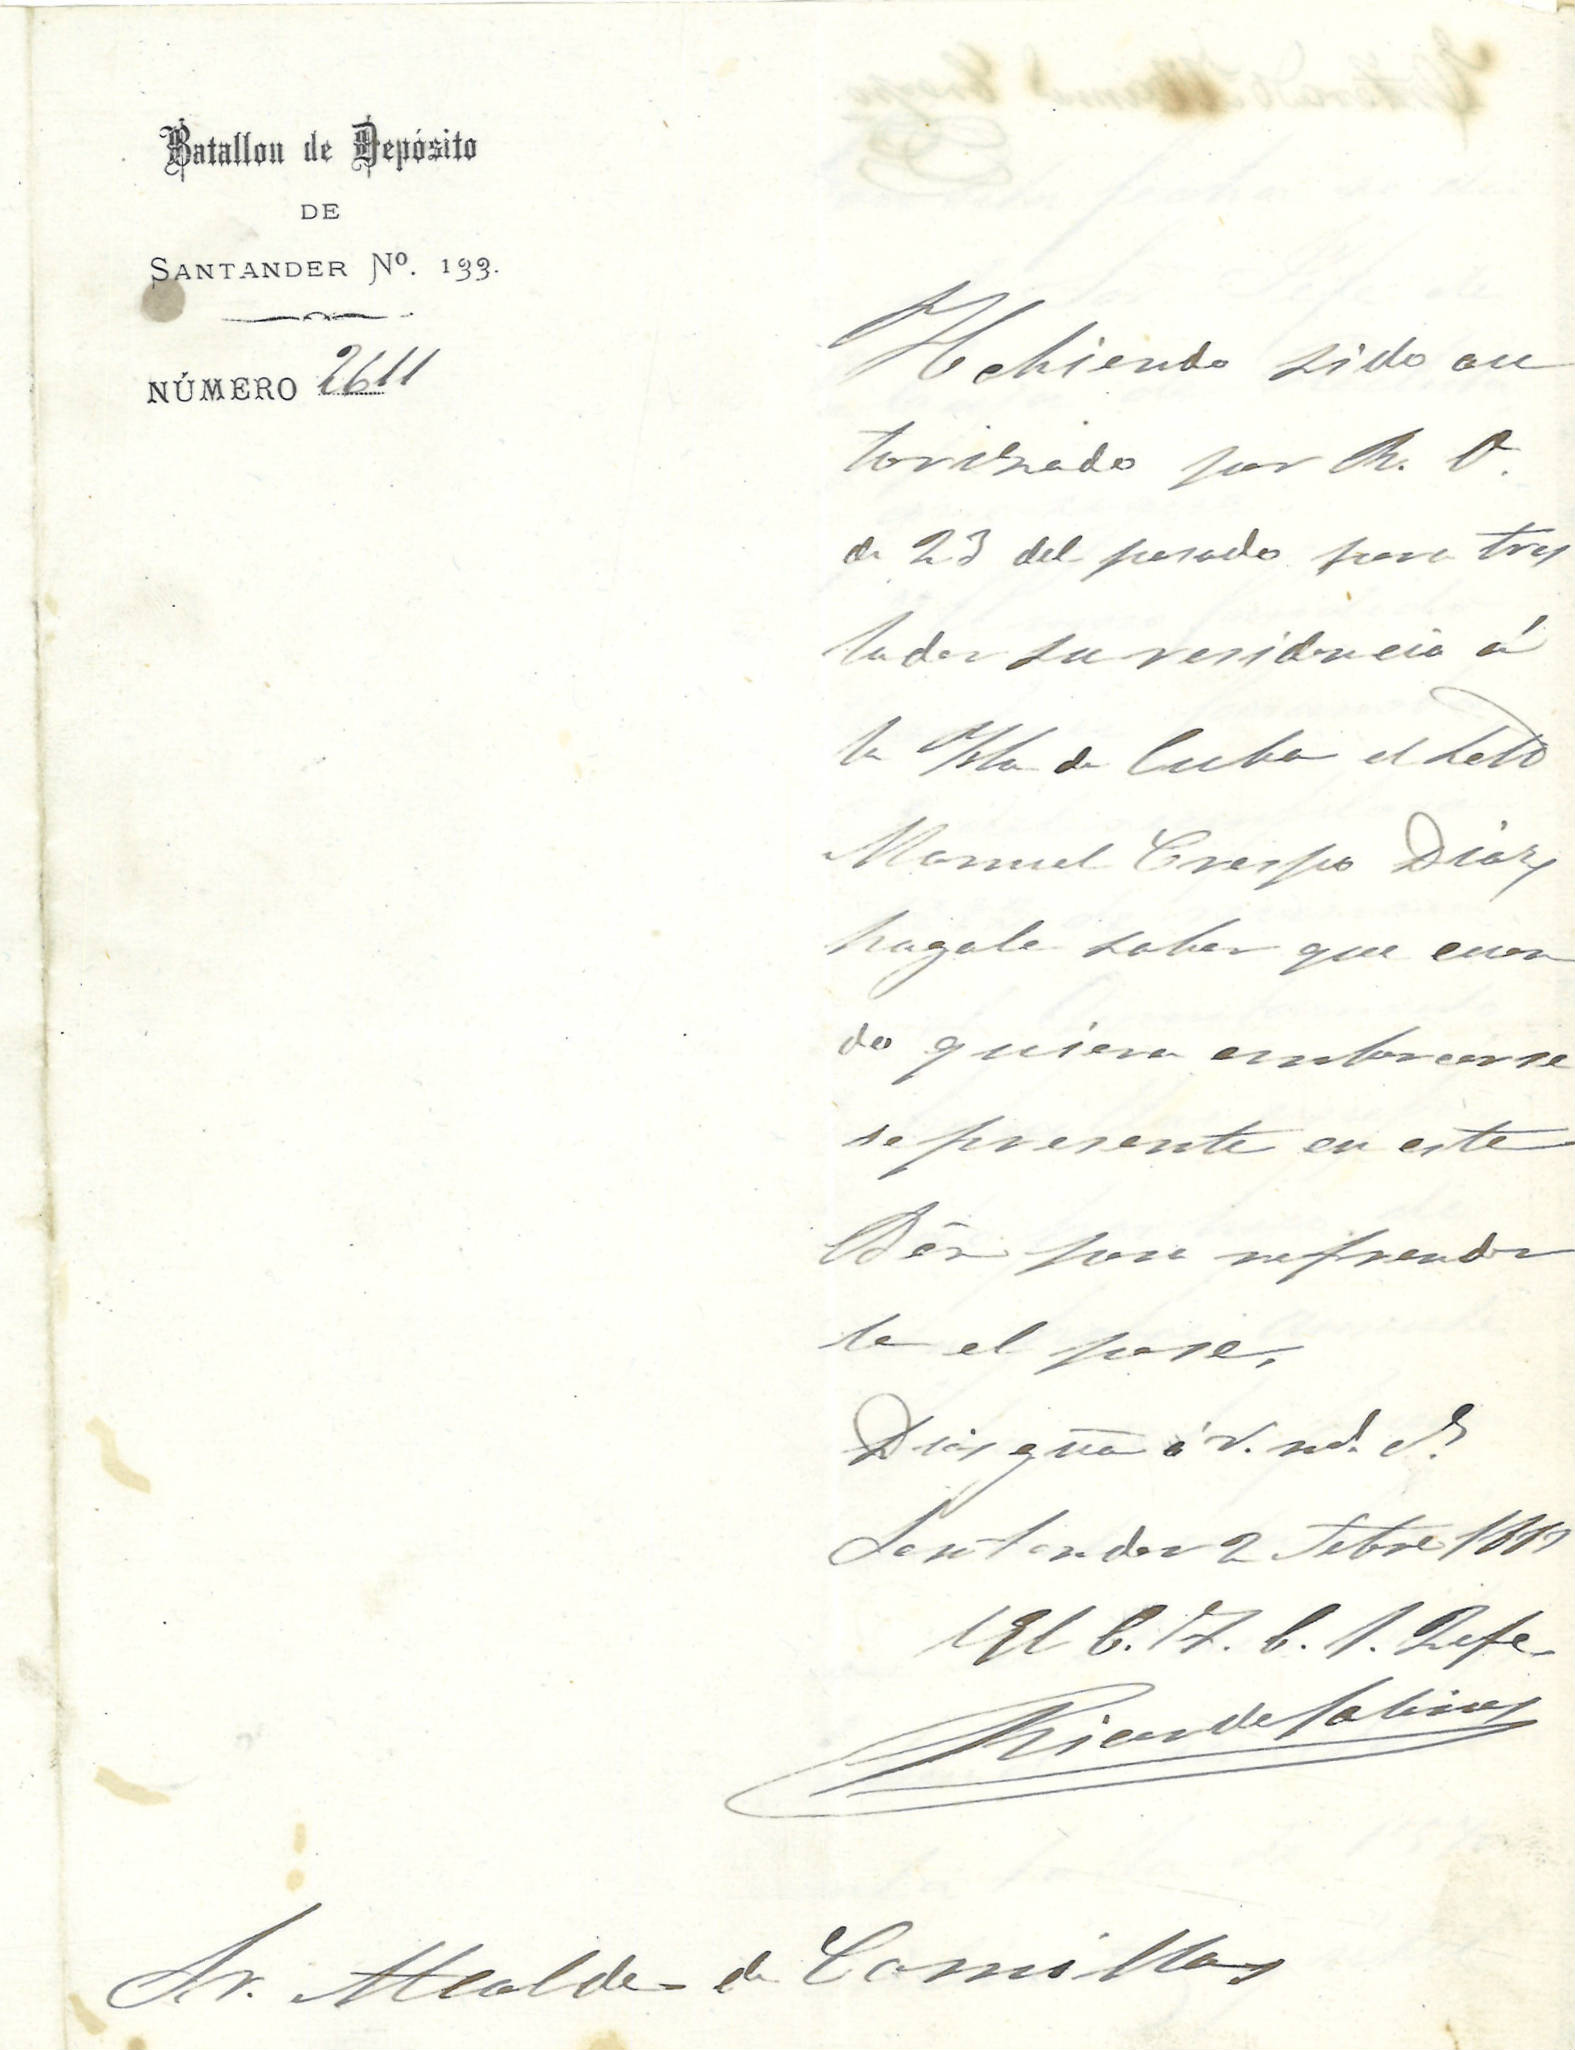 Batallon de Depósito
DE
SANTANDER Nº. 133.
NÚMERO 2611
Habiendo sido au
torizado por R. O.
de 23 del pasado para tras
ladar su residencia á
la Isla de Cuba el Sold
Manuel Crespo Diaz
hagale saber que cuan
do quiera embarcarse
se presente en este
Bón para refrendar
le el pase.
Dios gūe á V. m.s a.s
Santander 2 Setbre
El C. T. C. 1. Jefe
Ricardo Salinas
Sr. Alcalde de Comillas